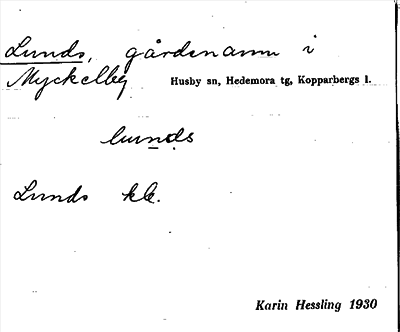 Lunds, gårdsnamn i
Myckelby Husby sn, Hedemora tg, Kopparbergs l.
lunds
Lunds kk.
Karin Hessling 1930